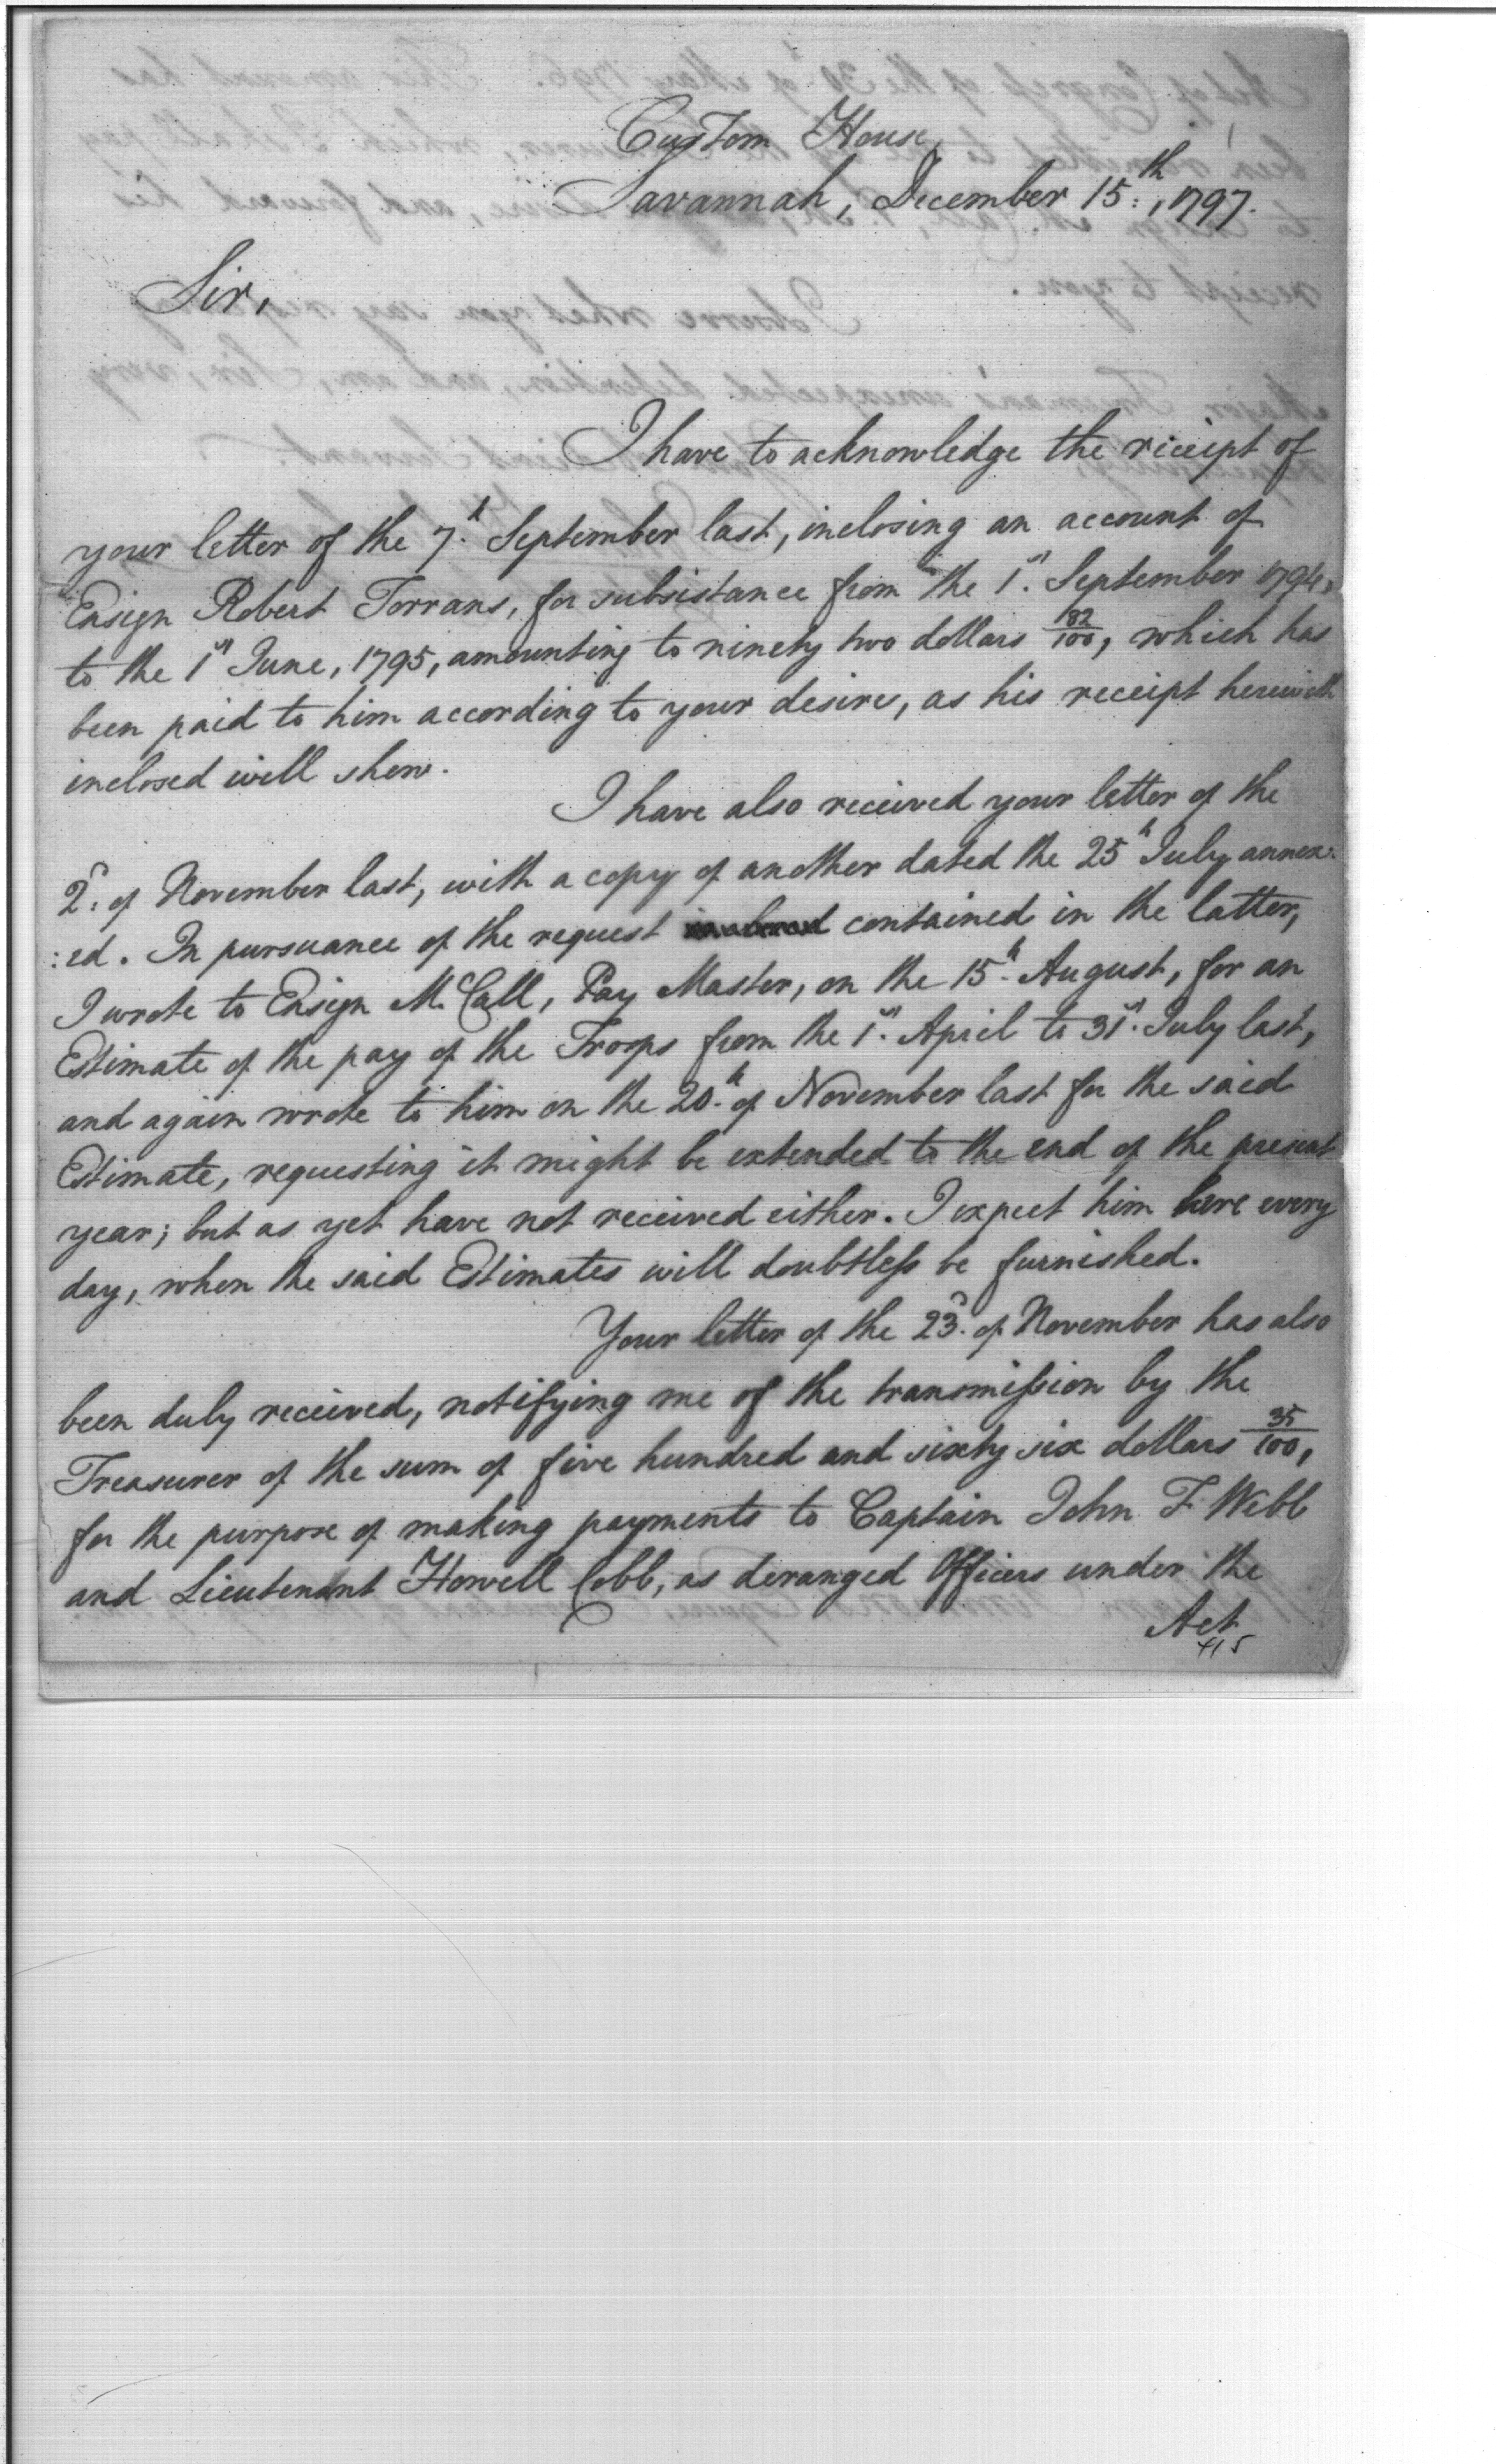 Custom House,
Savannah, December 15th, 1797.
Sir,
I have to acknowledge the receipt of
your letter of the 7th September last, inclosing an account of
Ensign Robert Torrans, for subsistance from the 1st September 1794,
to the 1st June, 1795, amounting to ninety two dollars 82/100, which has
been paid to him according to your desire, as his receipt herewith
inclosed will shew.
I have also received your letter of the
2d of November last, with a copy of another dated the 25th July annex:
:ed. In pursuance of the request contained in the latter,
I wrote to Ensign McCall, Pay Master, on the 15th August, for an
Estimate of the pay of the Troops from the 1st April to 31st July last,
and again wrote to him on the 20th of November last for the said
Estimate, requesting it might be extended to the end of the present
year; but as yet have not received either. I expect him here every
day, when the said Estimates will doubtless be furnished.
Your letter of the 23d of November has also
been duly received, notifying me of the transmission by the
Treasurer of the sum of five hundred and sixty six dollars 35/100,
for the purpose of making payments to Captain John F. Webb
and Lieutenant Howell Cobb, as deranged Officers under the
Act